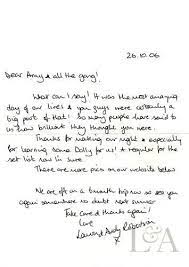 26.10.06
Dear Amy & all the gang!
What can I say! It was the most amazing
day of our lives & you guys were certainly a
big part of that! So many people have said to
us how brilliant they thought you were.
Thanks for making our night & especially
for learning some Dolly for us! A regular for the
set list now I'm sure -
There are more pics on our website below
We are off on a 6 month trip now so see you
again somewhere no doubt next summer
Take care & thanks again!
Love
Laura & Andy Robertson
x
L&A